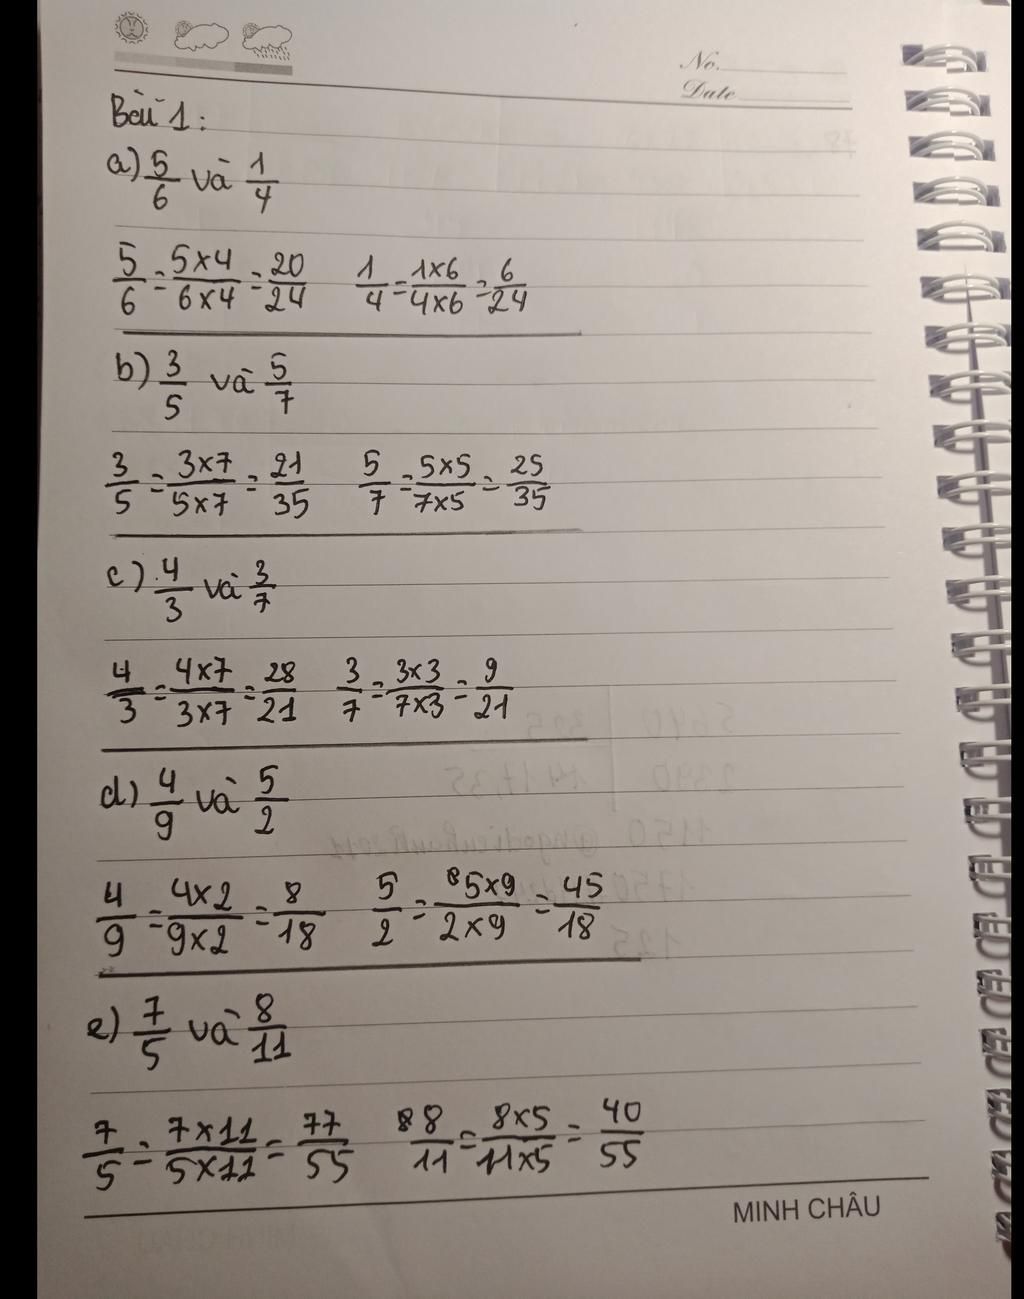 No.
Date
Bài 1:
a) 5/6 và 1/4
5/6 = 5x4/6x4 = 20/24 1/4 = 1x6/4x6 = 6/24
b) 3/5 và 5/7
3/5 = 3x7/5x7 = 21/35 5/7 = 5x5/7x5 = 25/35
c) 4/3 và 3/7
4/3 = 4x7/3x7 = 28/21 3/7 = 3x3/7x3 = 9/21
d) 4/9 và 5/2
4/9 = 4x2/9x2 = 8/18 5/2 = 5x9/2x9 = 45/18
e) 7/5 và 8/11
7/5 = 7x11/5x11 = 77/55 8/11 = 8x5/11x5 = 40/55
MINH CHÂU